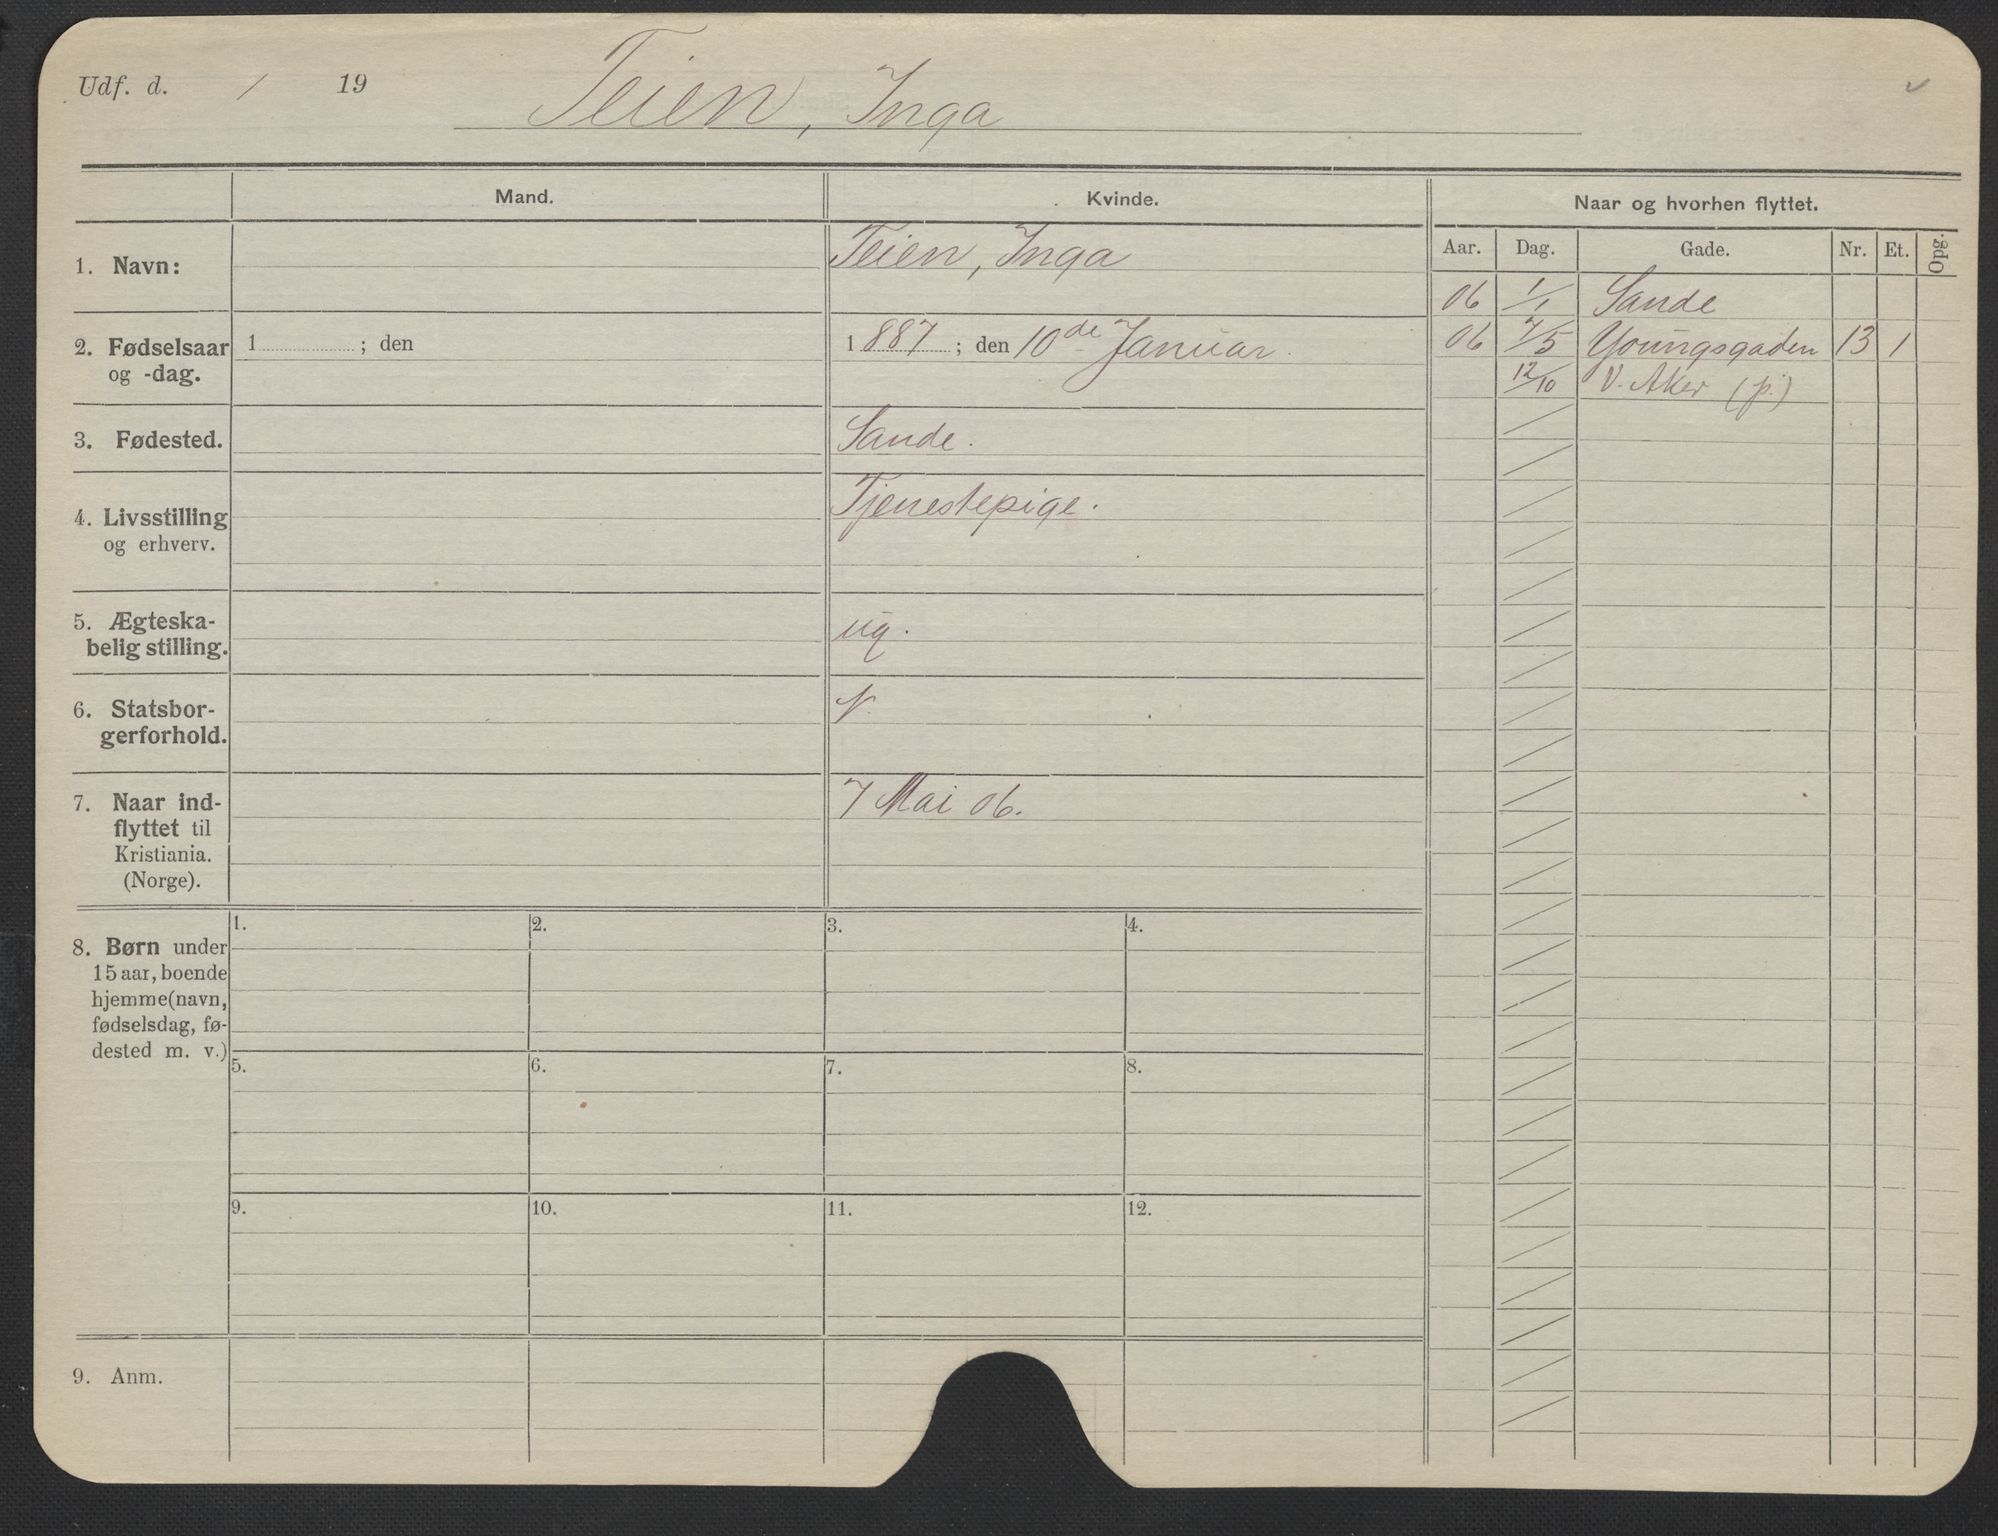 Udf. d. / 19
Teien, Inga
Mand.
Kvinde.
Naar og hvorhen flyttet.
Aar. Dag. Gade. Nr. Et. Opg.
1. Navn:
Teien, Inga
06 1/1 Sande
2. Fødselsaar
og -dag.
1 ; den
1887 ; den 10de Januar.
06 7/5 Youngsgaden 13 1
12/10 V. Aker (p.)
3. Fødested.
Sande.
4. Livsstilling
og erhverv.
Tjenestepige.
5. Ægteska-
belig stilling.
ug.
6. Statsbor-
gerforhold.
N.
7. Naar ind-
flyttet til
Kristiania.
(Norge).
7 Mai 06.
8. Børn under
15 aar, boende
hjemme (navn,
fødselsdag, fø-
dested m. v.)
1. 2. 3. 4.
5. 6. 7. 8.
9. 10. 11. 12.
9. Anm.